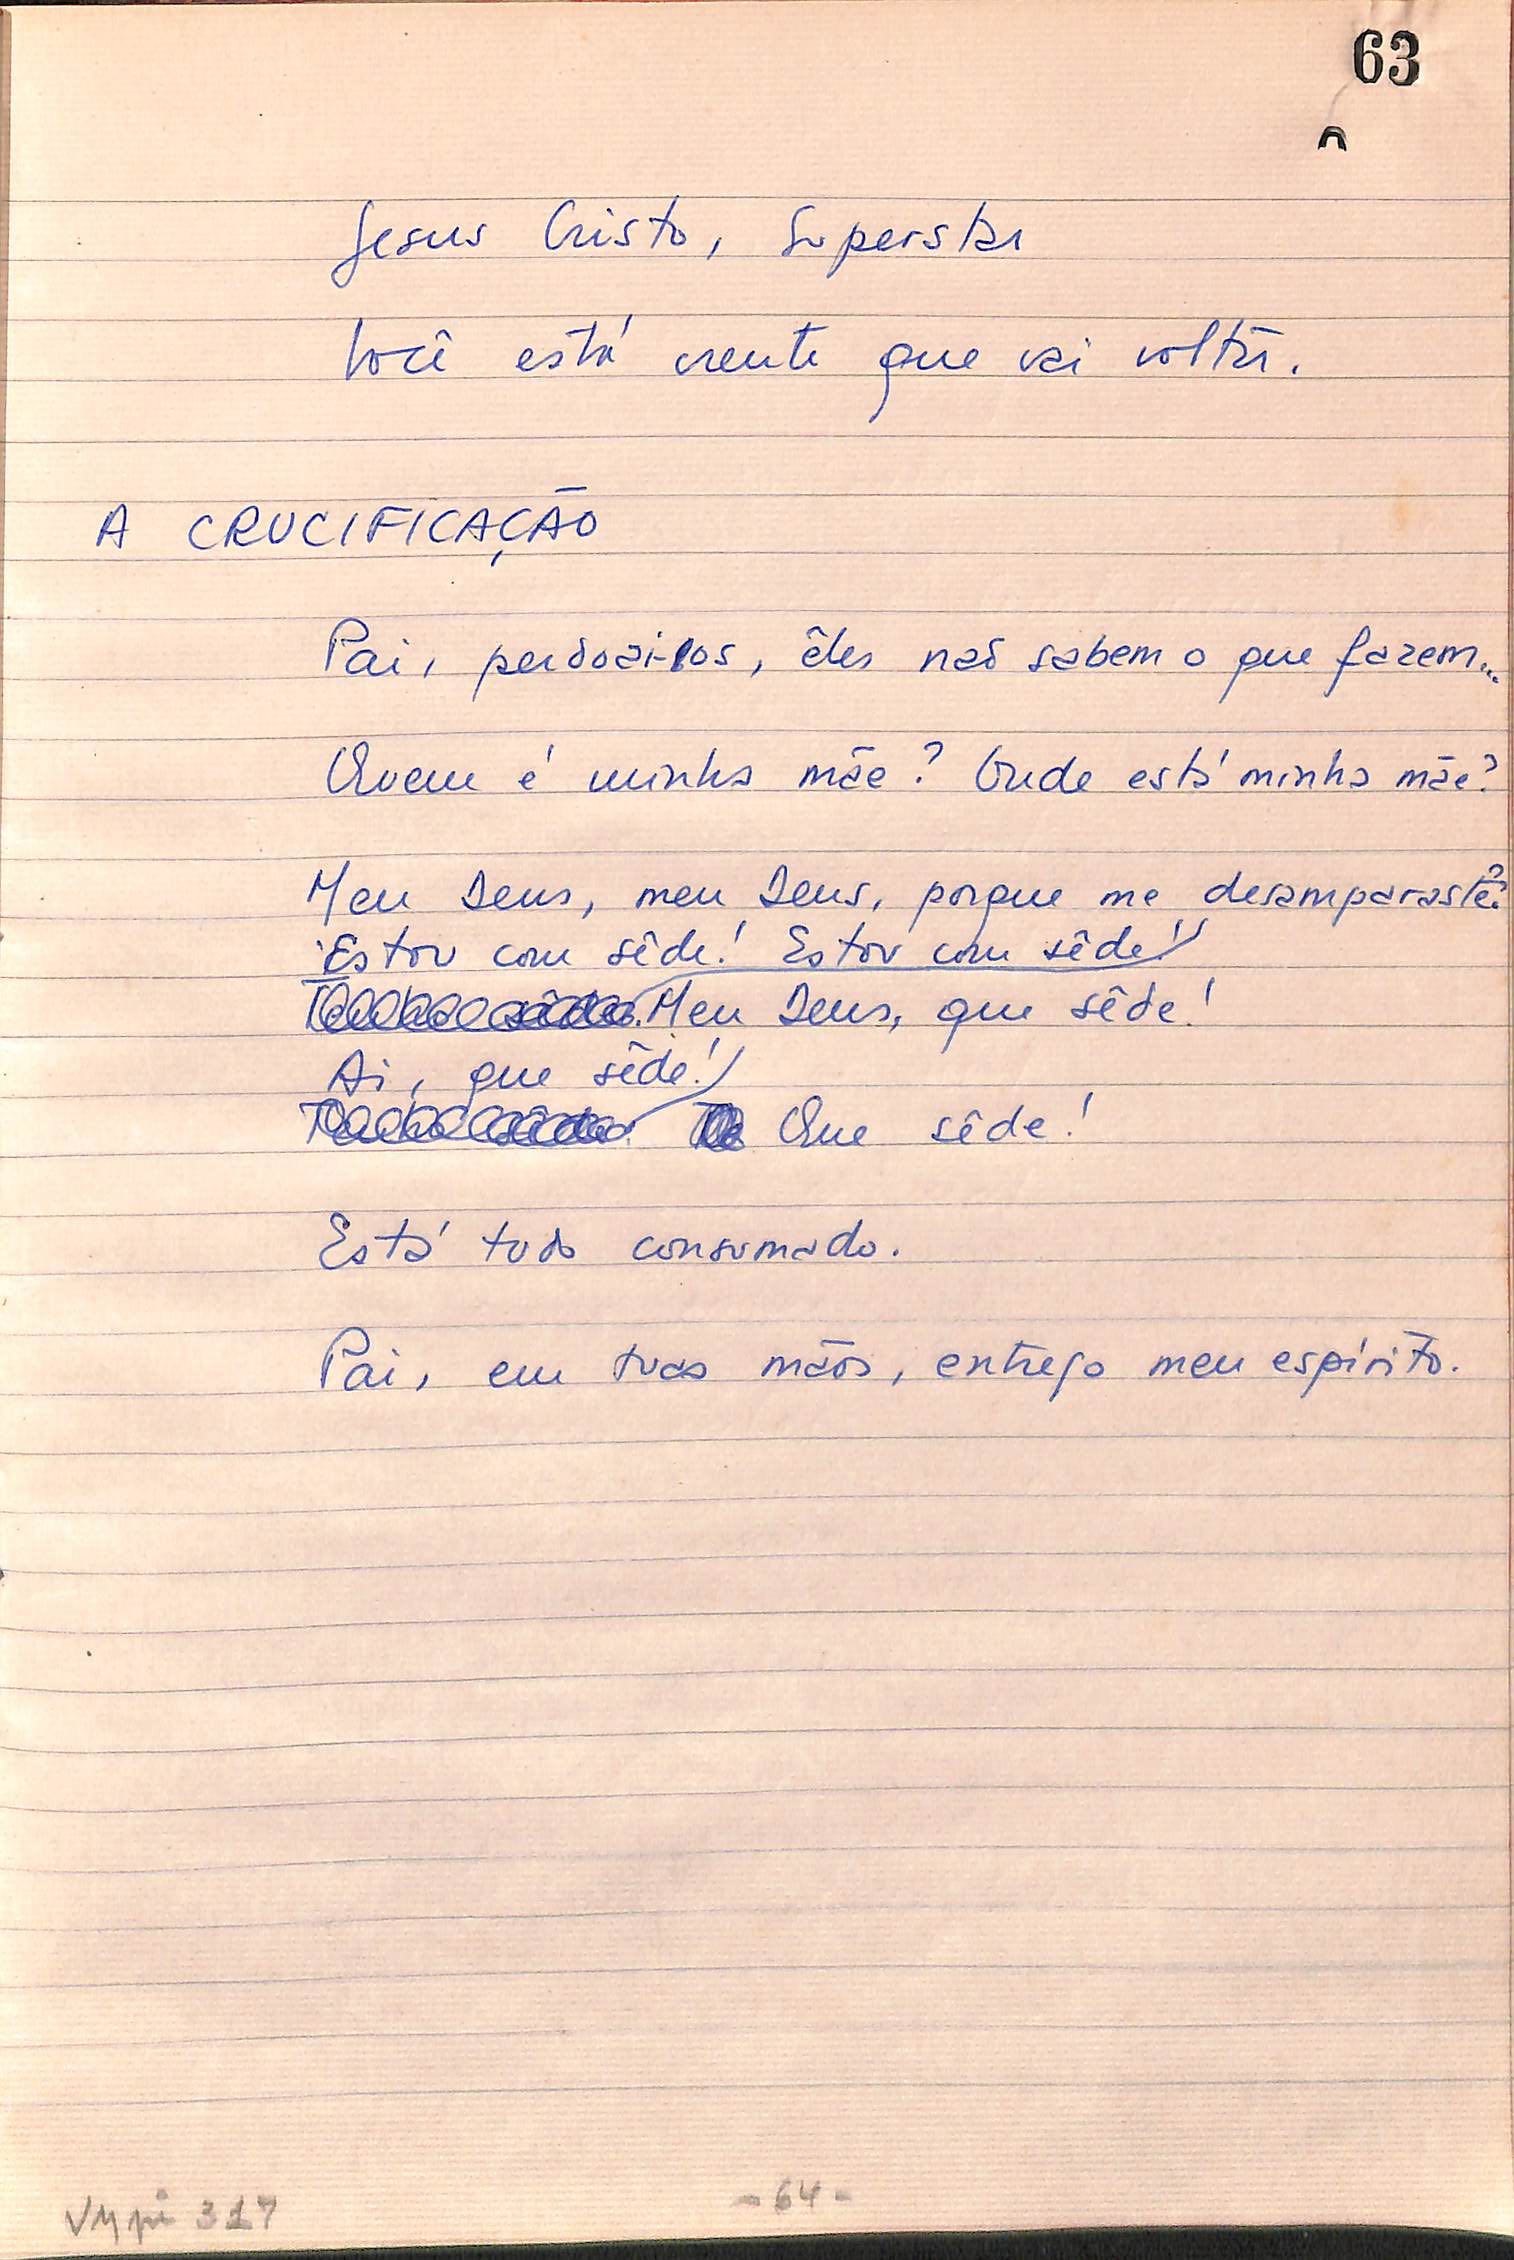 63
Jesus Cristo, Superstar
Você está crente que vai voltar.
A CRUCIFICAÇÃO
Pai, perdoai-los, êles não sabem o que fazem...
Quem é minha mãe? Onde está minha mãe?
Meu Deus, meu Deus, porque me desamparaste?
Estou com sêde! Estou com sêde!
Meu Deus, que sêde!
Ai, que sêde!
Que sêde!
Está tudo consumado.
Pai, em tuas mãos, entrego meu espírito.
- 64 -
VMpi 317